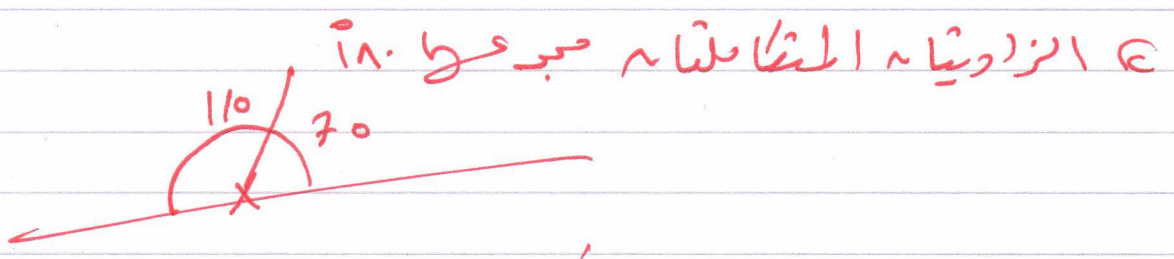 ٢ الزاويتان المتكاملتان مجموعها ١٨٠°
110
70